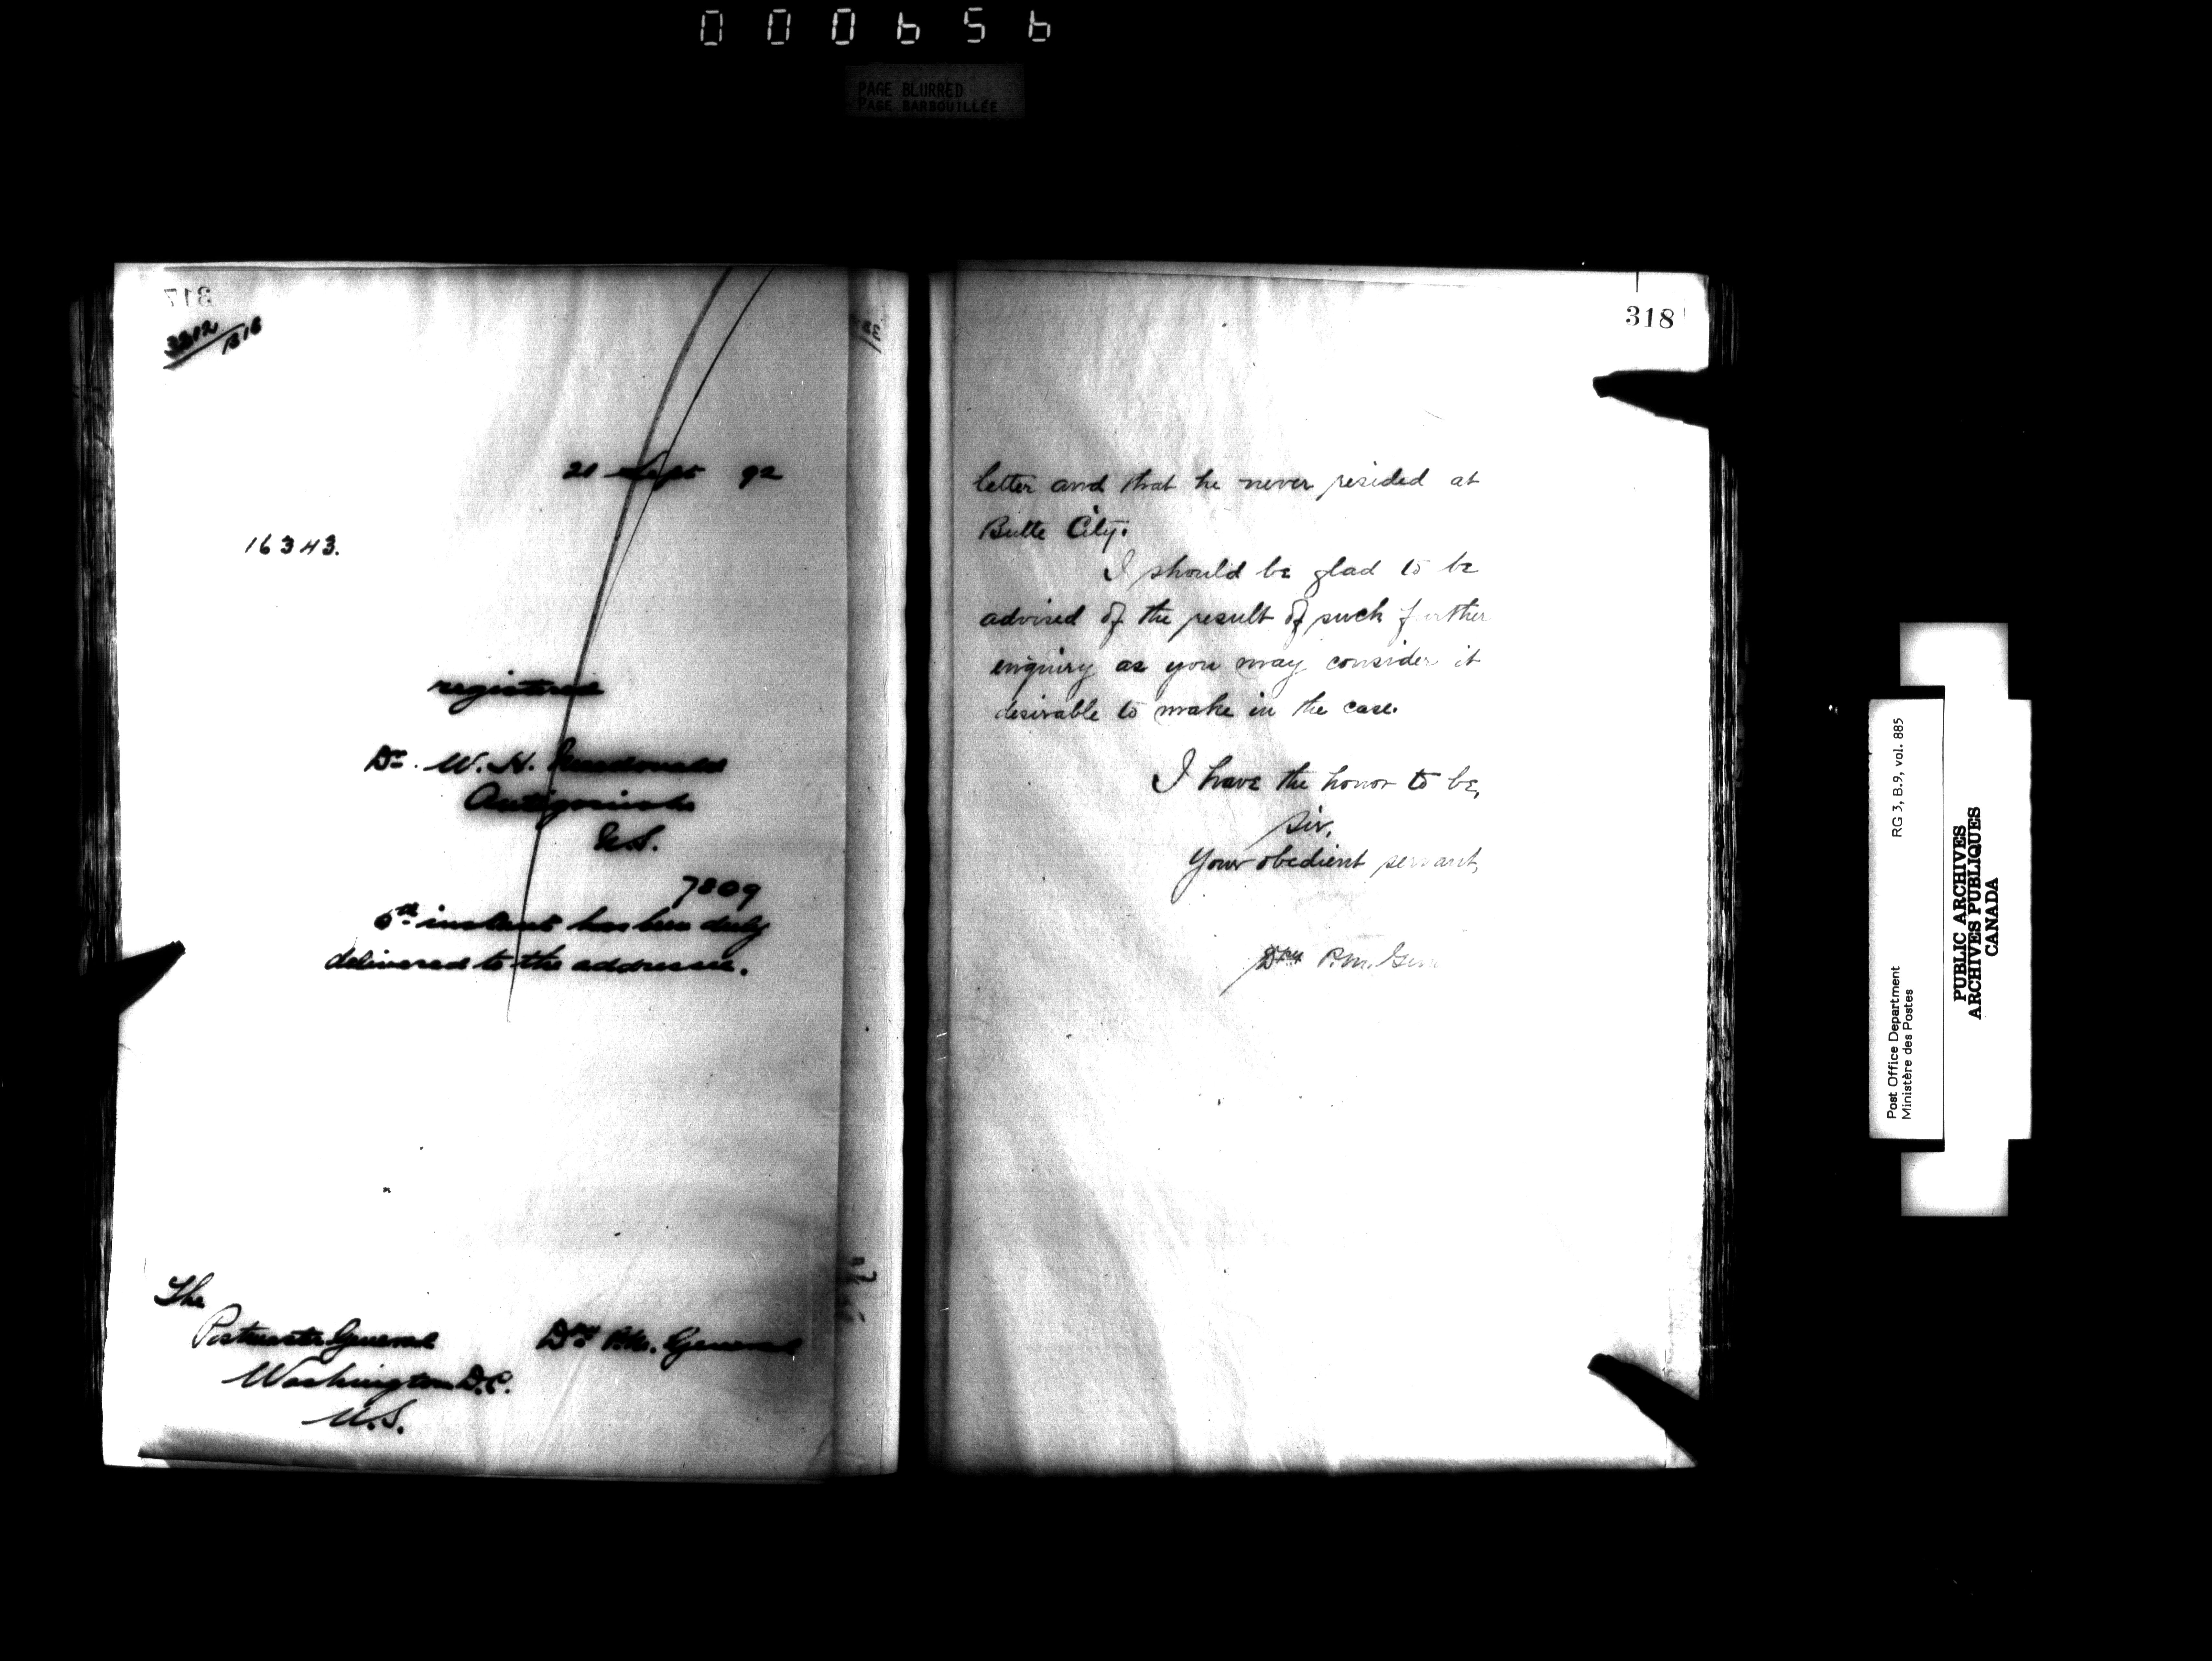 000656
PAGE BLURRED
PAGE BARBOUILLÉE
317
3212/B16
21 Sept 92
16343.
registered
Dr. W. H. Macdonald
Antigonish
N.S.
7809
6th instant has been duly
delivered to the addressee.
The
Postmaster General
Washington D.C.
U.S.
Dpy P.M. General
318
letter and that he never resided at
Butte City.
I should be glad to be
advised of the result of such further
enquiry as you may consider it
desirable to make in the case.
I have the honor to be,
Sir,
Your obedient servant,
Dpy P.M. Gen
Post Office Department
Ministère des Postes
RG 3, B.9, vol. 885
PUBLIC ARCHIVES
ARCHIVES PUBLIQUES
CANADA